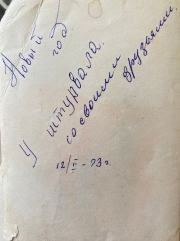 Новый
год
У штурвала
со своими
друзьями.
12/I - 93 г.